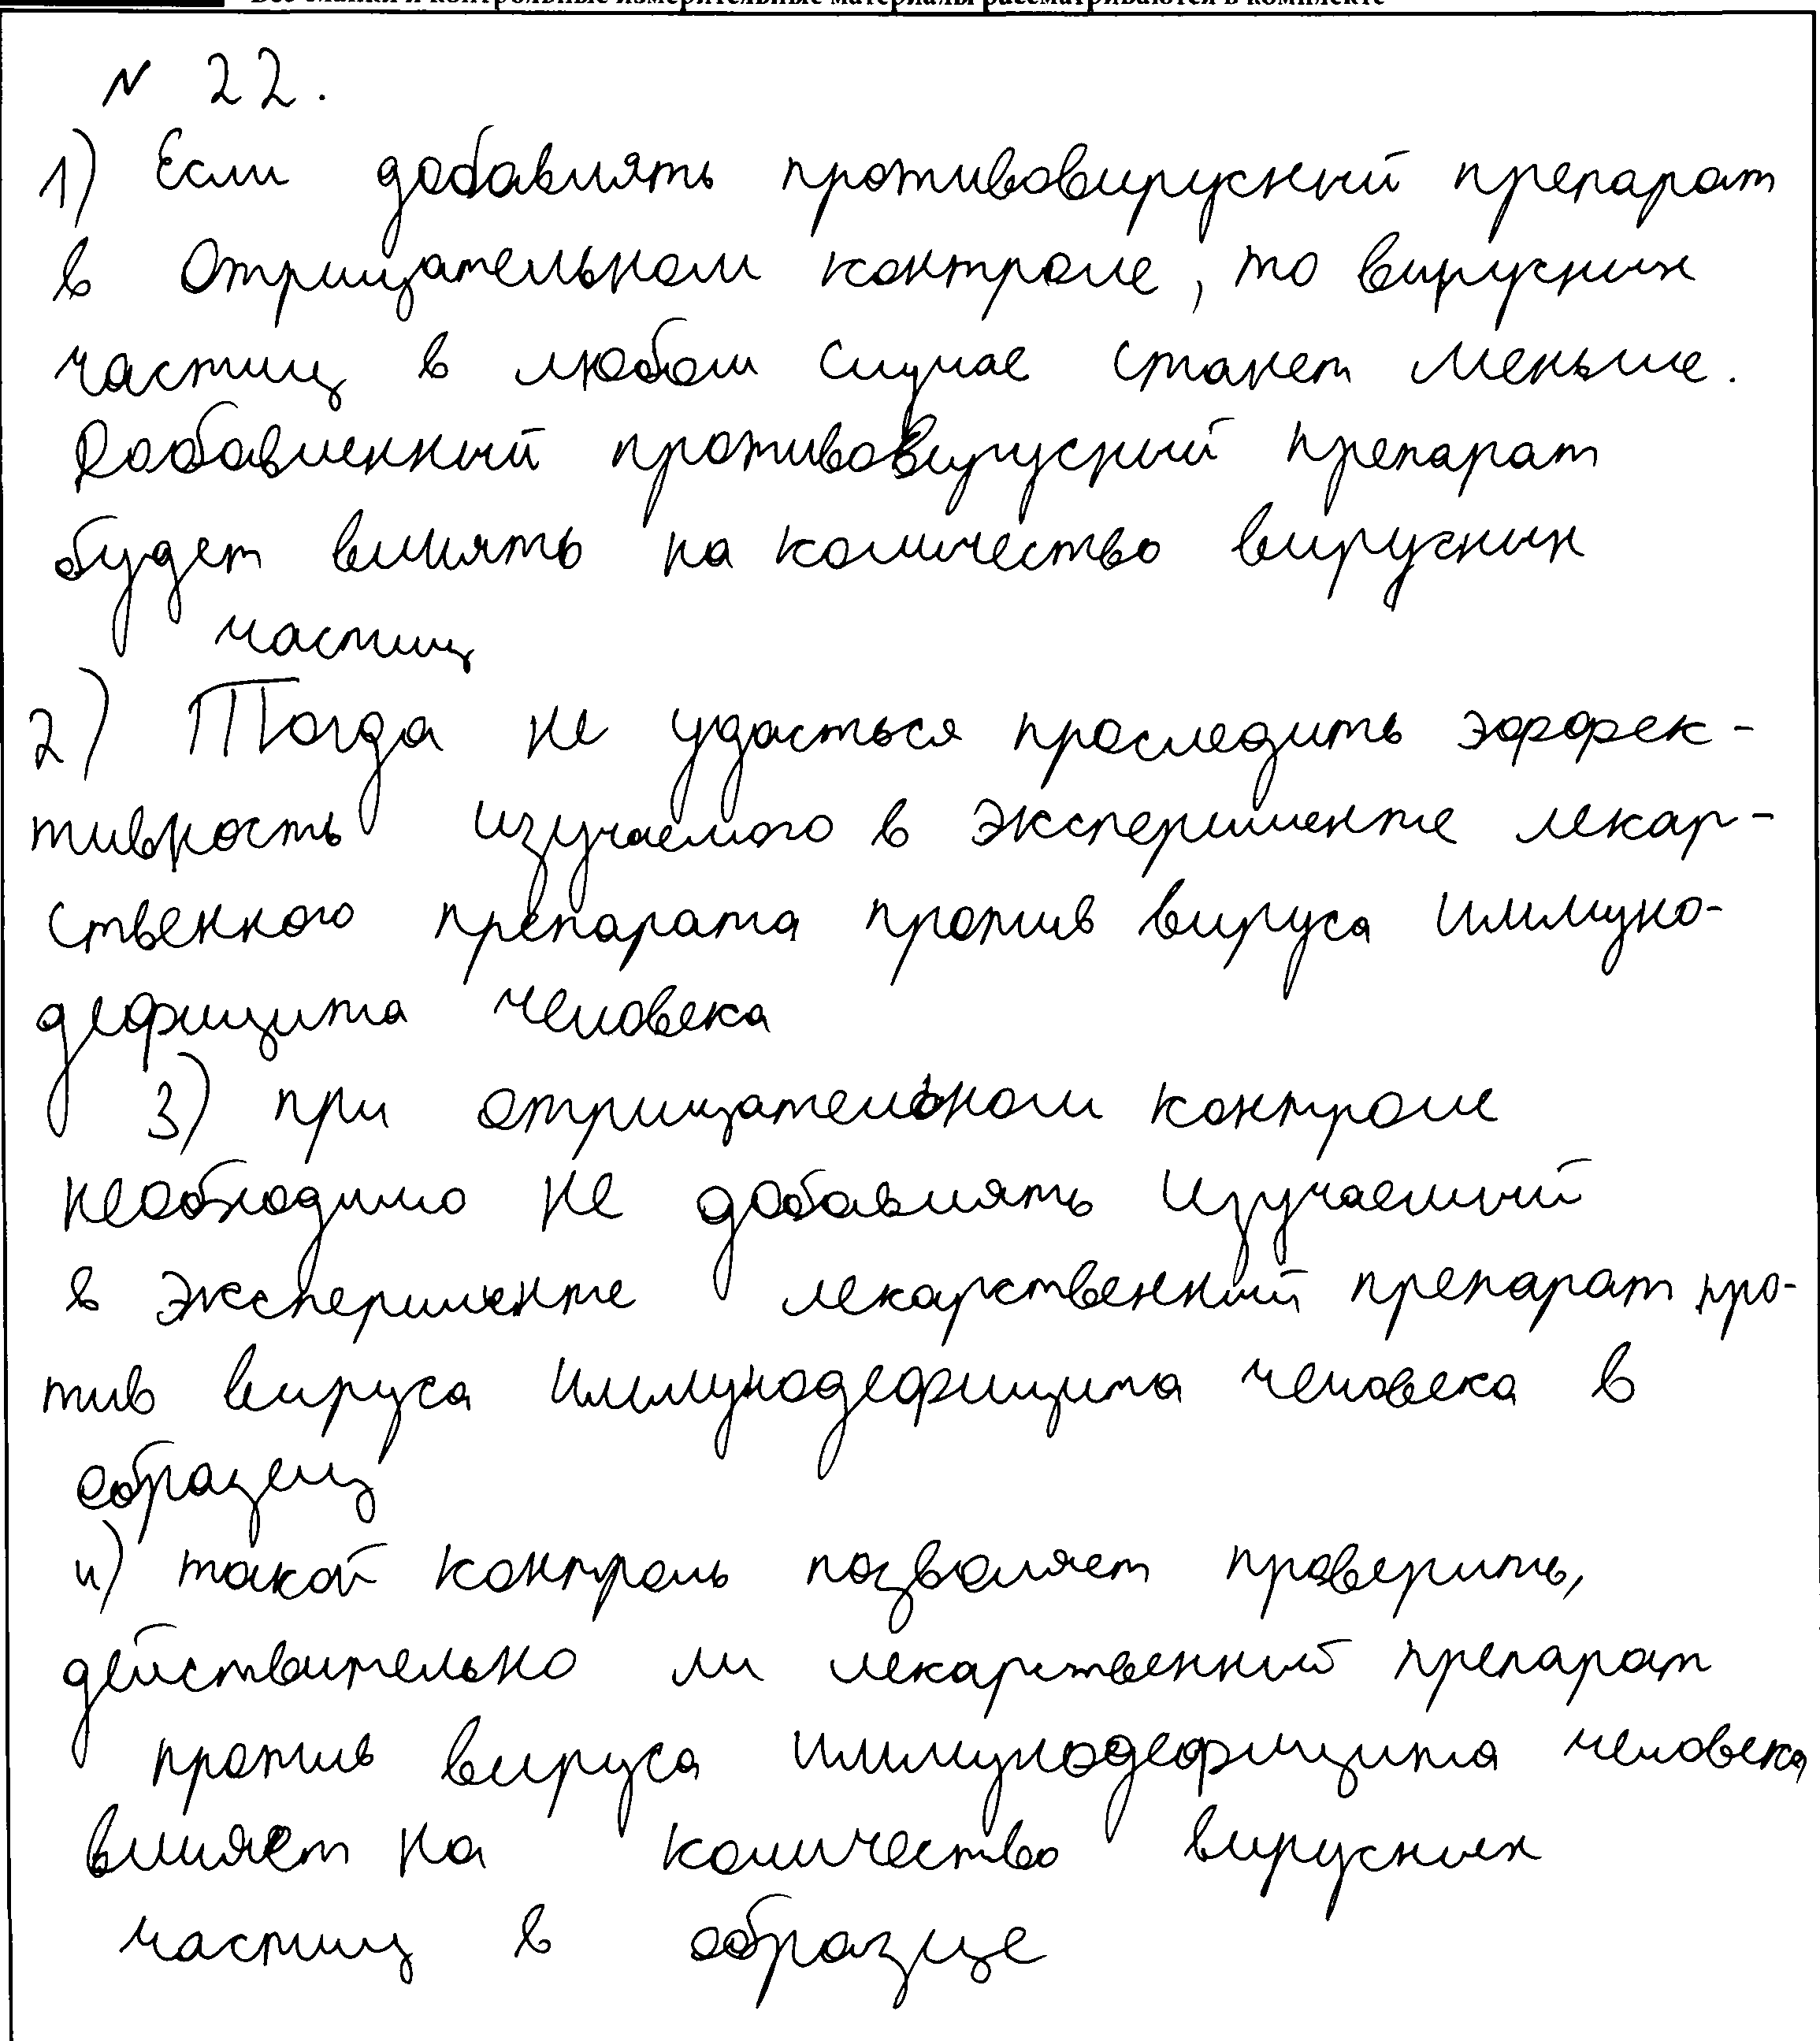 Все бланки и контрольные измерительные материалы рассматриваются в комплекте
N 22.
1) Если добавлять противовирусный препарат
в отрицательном контроле, то вирусных
частиц в любом случае станет меньше.
Добавленный противовирусный препарат
будет влиять на количество вирусных
частиц
2) Тогда не удасться проследить эффек-
тивность изучаемого в эксперименте лекар-
ственного препарата против вируса иммуно-
дефицита человека
3) при отрицательном контроле
необходимо не добавлять изучаемый
в эксперименте лекарственный препарат про-
тив вируса иммунодефицита человека в
образец
4) такой контроль позволяет проверить,
действительно ли лекарственный препарат
против вируса иммунодефицита человека
влияет на количество вирусных
частиц в образце